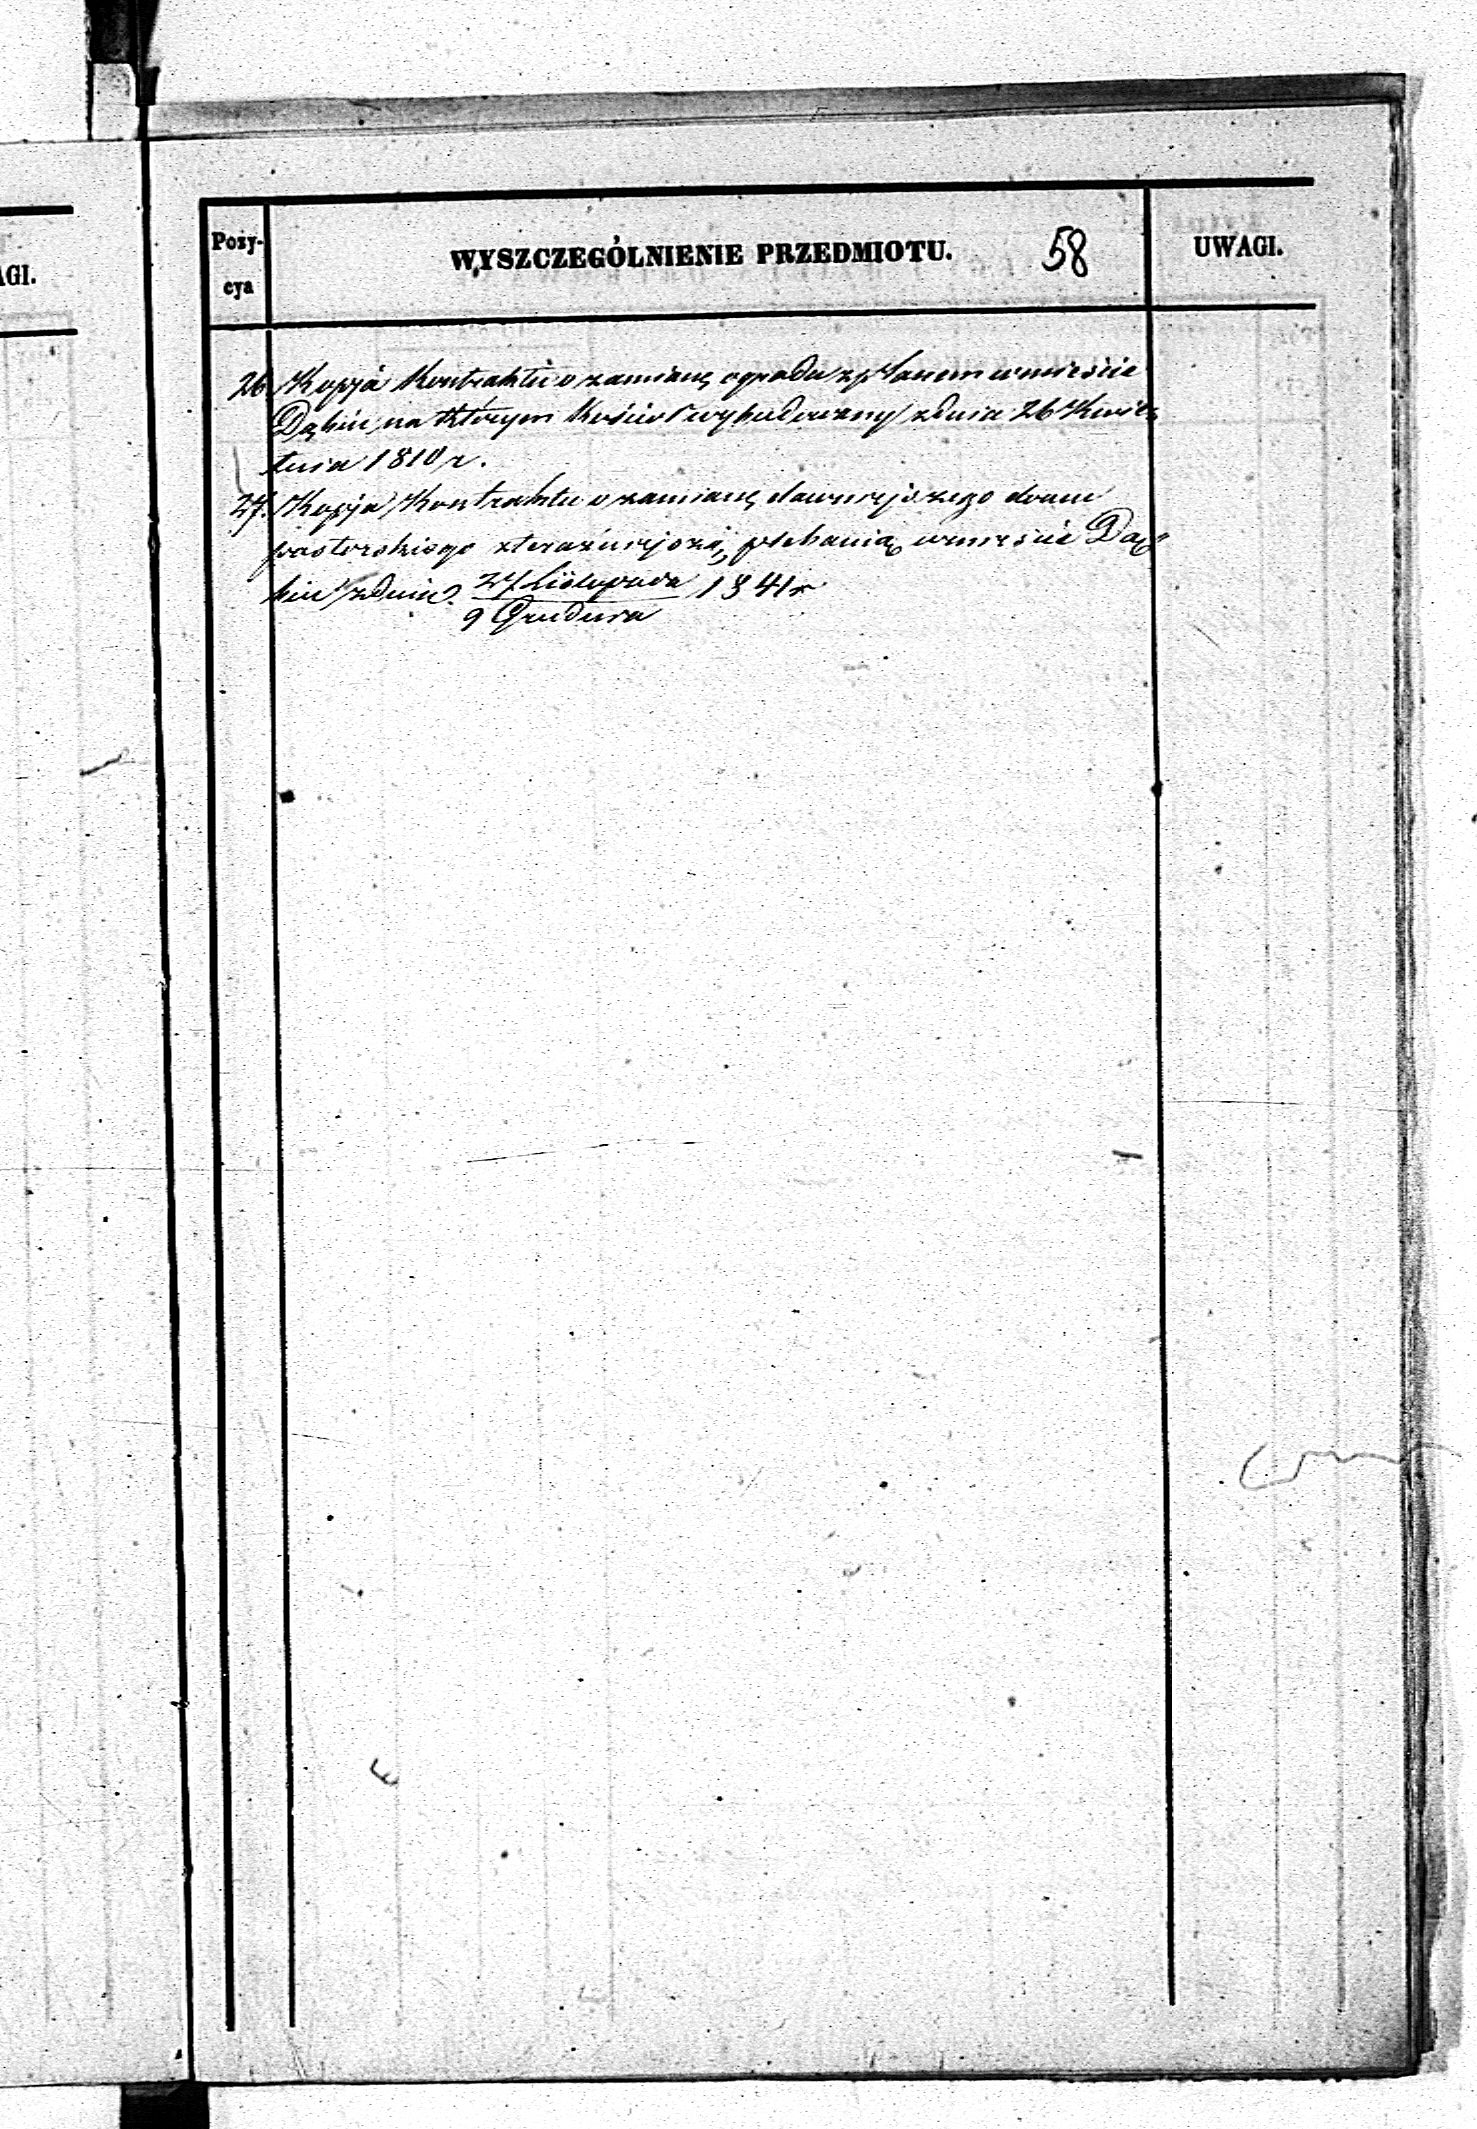 AGI.
Pozy-
cya
WYSZCZEGÓLNIENIE PRZEDMIOTU.
58
UWAGI.
26. Kopja Kontraktu o zamianę ogrodu z placem w mieście
Dąbiu, na którym Kościoł wybudowany z dnia 26 Kwie-
tnia 1810 r.
27. Kopja Kontraktu o zamianę dawniejszego domu
pastorskiego z teraźniejszą plebanią w mieście Dą-
biu z dnia 27 Listopada 1841 r
9 Grudnia